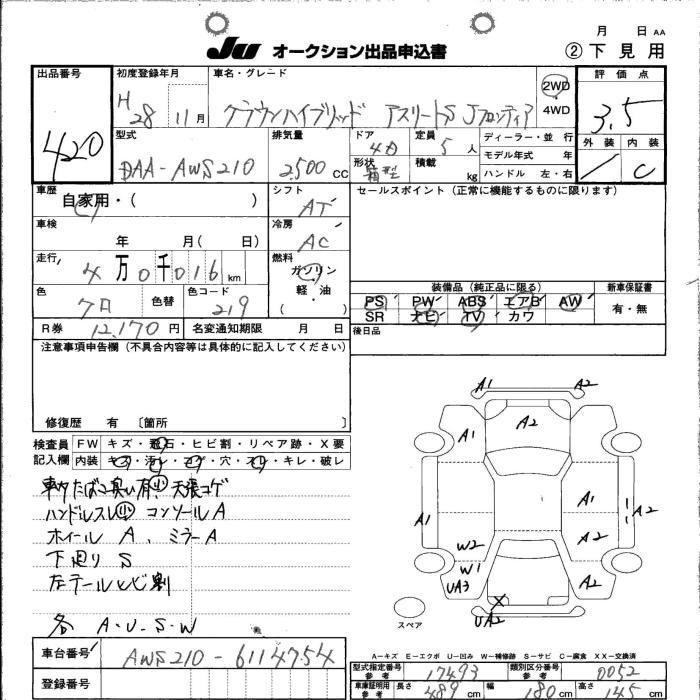 月 日 AA
JU オークション出品申込書 ② 下見用
出品番号 初度登録年月 車名・グレード 評価点
420 H28 11月 クラウンハイブリッド アスリートS Jフロンティア 2WD 4WD 3.5
型式 排気量 ドア 定員 ディーラー・並行 外装 内装
DAA-AWS210 2,500 CC 4D 5人 モデル年式 年 C
形状 箱型 積載 kg ハンドル 左・右
車歴 シフト セールスポイント(正常に機能するものに限ります)
自家用・( ) AT
車検 冷房
年 月( 日) AC
走行 燃料
4万0千016km ガソリン
軽・油
( )
装備品(純正品に限る) 新車保証書
色 色替 色コード PS PW ABS エアB AW 有・無
クロ 219 SR ナビ TV カワ
R券 12,170円 名変通知期限 月 日 後日品
注意事項申告欄(不具合内容等は具体的に記入してください)
修復歴 有 〔箇所 〕
検査員 FW キズ・飛石・ヒビ割・リペア跡・X要
記入欄 内装 キズ・汚レ・コゲ・穴・スレ・キレ・破レ
車内たばこ臭い有小 天張コゲ
ハンドルスレ小 コンソールA
ホイール A、ミラーA
下廻り S
左テールヒビ割
各 A-U-S-W
A1 A2
A1 A2
A1 A1 A2
W2 A2
W1
UA3 A2
X
UA2
スペア
A-キズ E-エクボ U-凹み W-補修跡 S-サビ C-腐食 XX-交換済
車台番号 AWS210-6114754
登録番号
型式指定番号 参考 17493 類別区分番号 参考 0052
車庫証明用 参考 長さ 489cm 幅 180cm 高さ 145cm